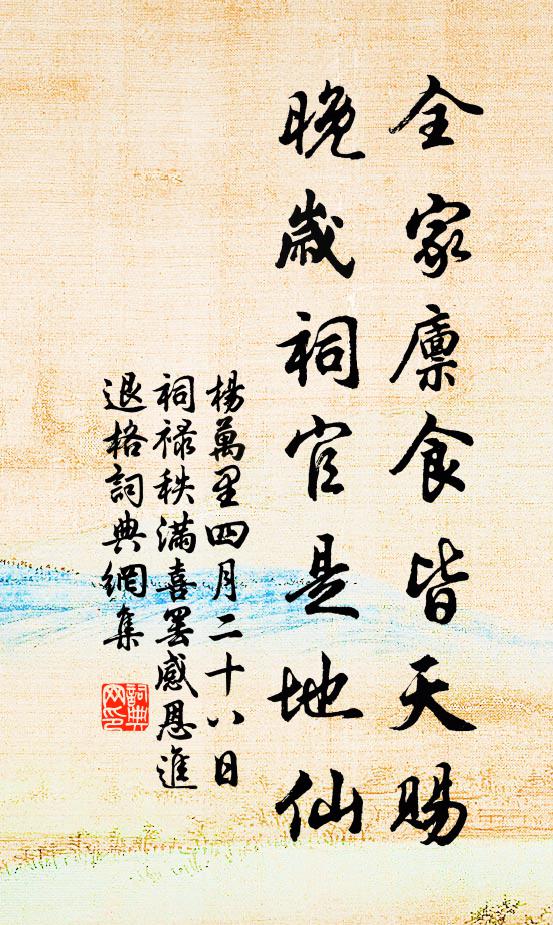 全家廪食皆天賜
晚歲祠官是地仙
楊萬里四月二十八日
祠禄秩滿喜罢感恩進
退格詞典網集
詞典
网印